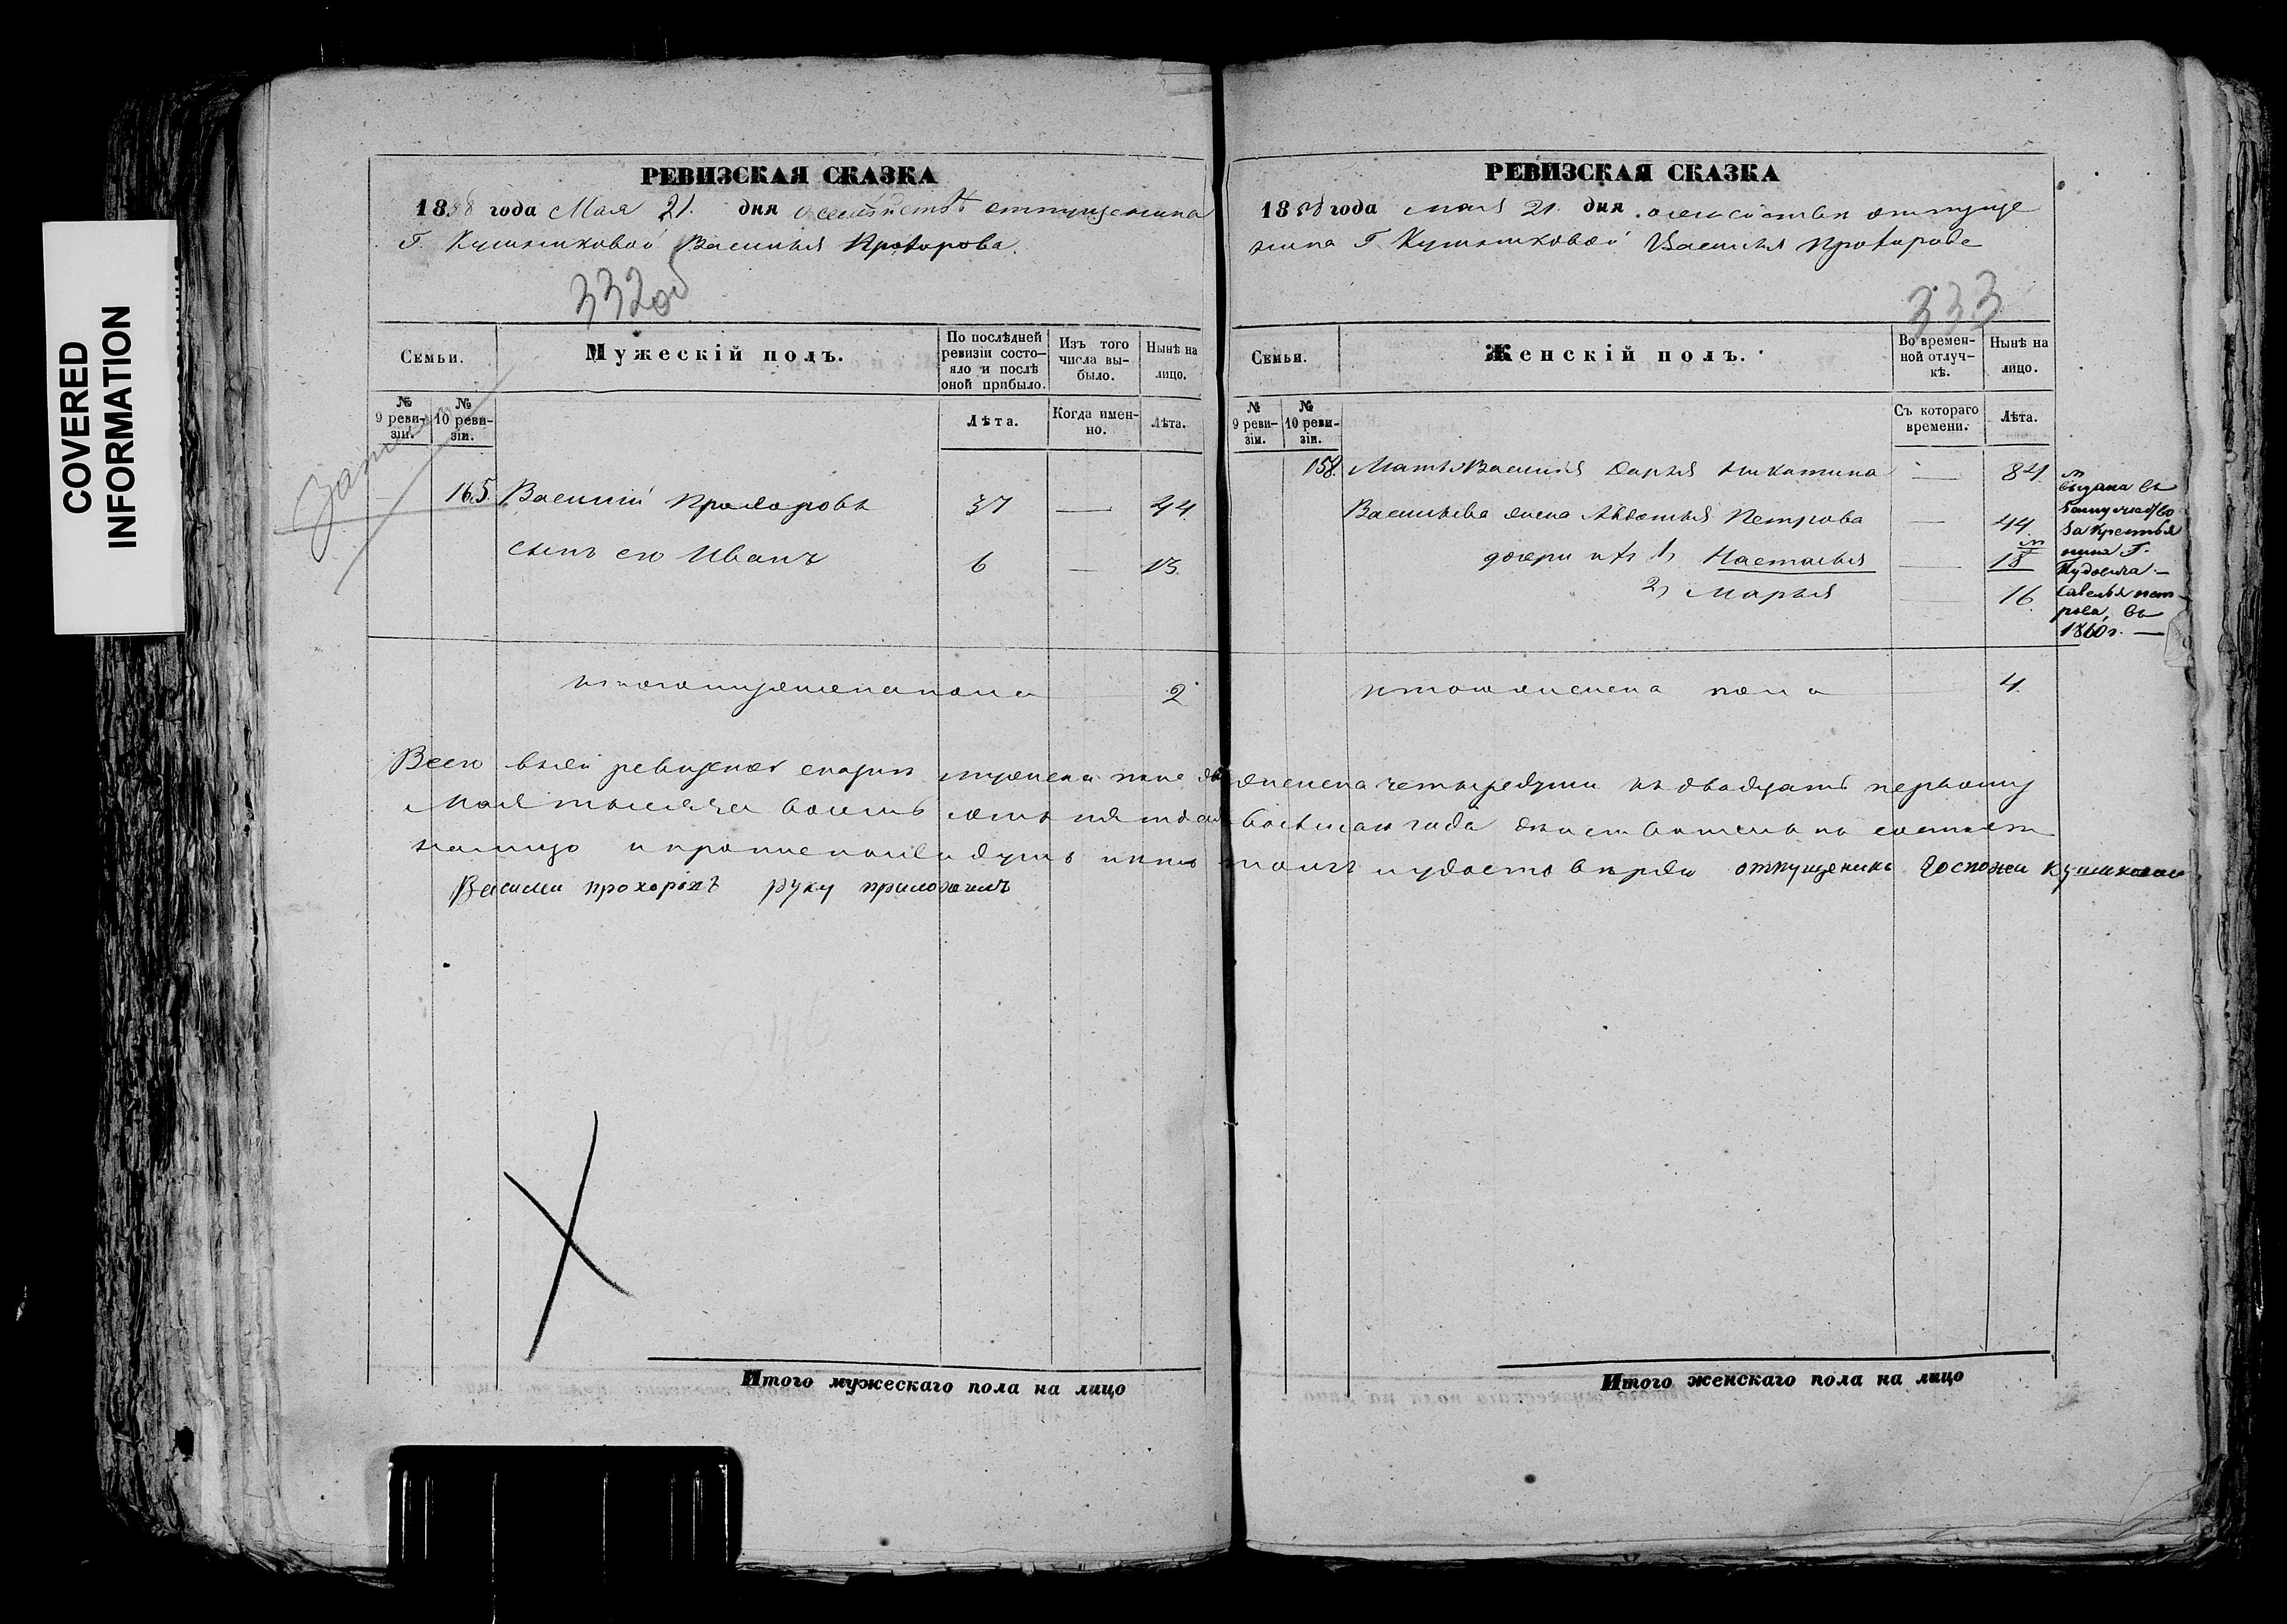 COVERED
INFORMATION
РЕВИЗСКАЯ СКАЗКА
1858 года Мая 21. дня о семействѣ отпущенина
Г. Кушниковой Василья Прохорова.
332об
Семьи.
Мужескій полъ.
По послѣдней ревизіи состояло и послѣ оной прибыло.
Изъ того числа выбыло.
Нынѣ на лицо.
№ 9 ревизіи.
№ 10 ревизіи.
Лѣта.
Когда именно.
Лѣта.
165. Василій Прохоровъ 37 — 44
сынъ его Иванъ 6 — 13
итого мужеска пола 2
РЕВИЗСКАЯ СКАЗКА
1858 года мая 21. дня о семействѣ отпуще
нина Г. Кушниковой Василья Прохорова
333
Семьи.
Женскій полъ.
Во временной отлучкѣ.
Нынѣ на лицо.
№ 9 ревизіи.
№ 10 ревизіи.
Съ котораго времени.
Лѣта.
158. Мать Василья Дарья Никитина — 84
Васильева жена Авдотья Петрова — 44
дочери ихъ 1, Настасья — 18
2, Марья — 16
выдана въ
замужество
за крестья
нина Г.
Савелья Пет
рова, въ
1860 г. —
итого женска пола 4
Всего въ сей ревизской сказкѣ мужеска пола двѣ женска четыре души къ двадцать первому
Мая тысяча восемь сотъ пятьдесятъ восьмаго года дѣйствительно состоитъ
налицо и кромѣ показанныхъ душъ нѣтъ въ томъ и удостовѣряю отпущеникъ Госпожи Кушниковой
Василий прохоровъ руку приложилъ
Итого мужескаго пола на лицо
Итого женскаго пола на лицо